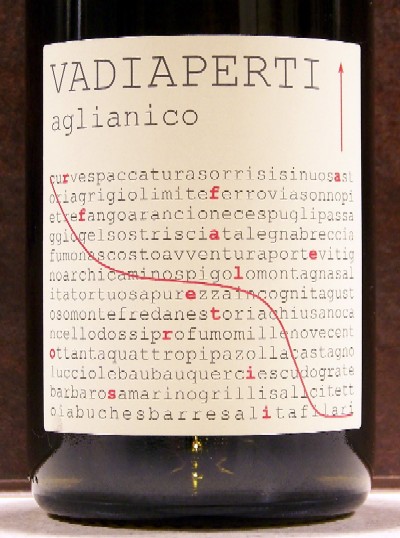 VADIAPERTI
aglianico
curvespaccaturasorrisisinuosast
oriagrigiolimiteferroviasonnopi
etrefangoarancionecespuglipassa
ggiogelsostrisciatalegnabreccia
fumonascostoavventuraportevitig
noarchicaminospigolomontagnasal
itatortuosapurezzaincognitagust
osomontefredanestoriachiusanoca
ncellodossiprofumomillenovecent
ottantaquattropipazollacastagno
lucciolebaubauquerciescudograte
barbarosamarinogrillisalicitett
oiabuchesbarresalitafilari